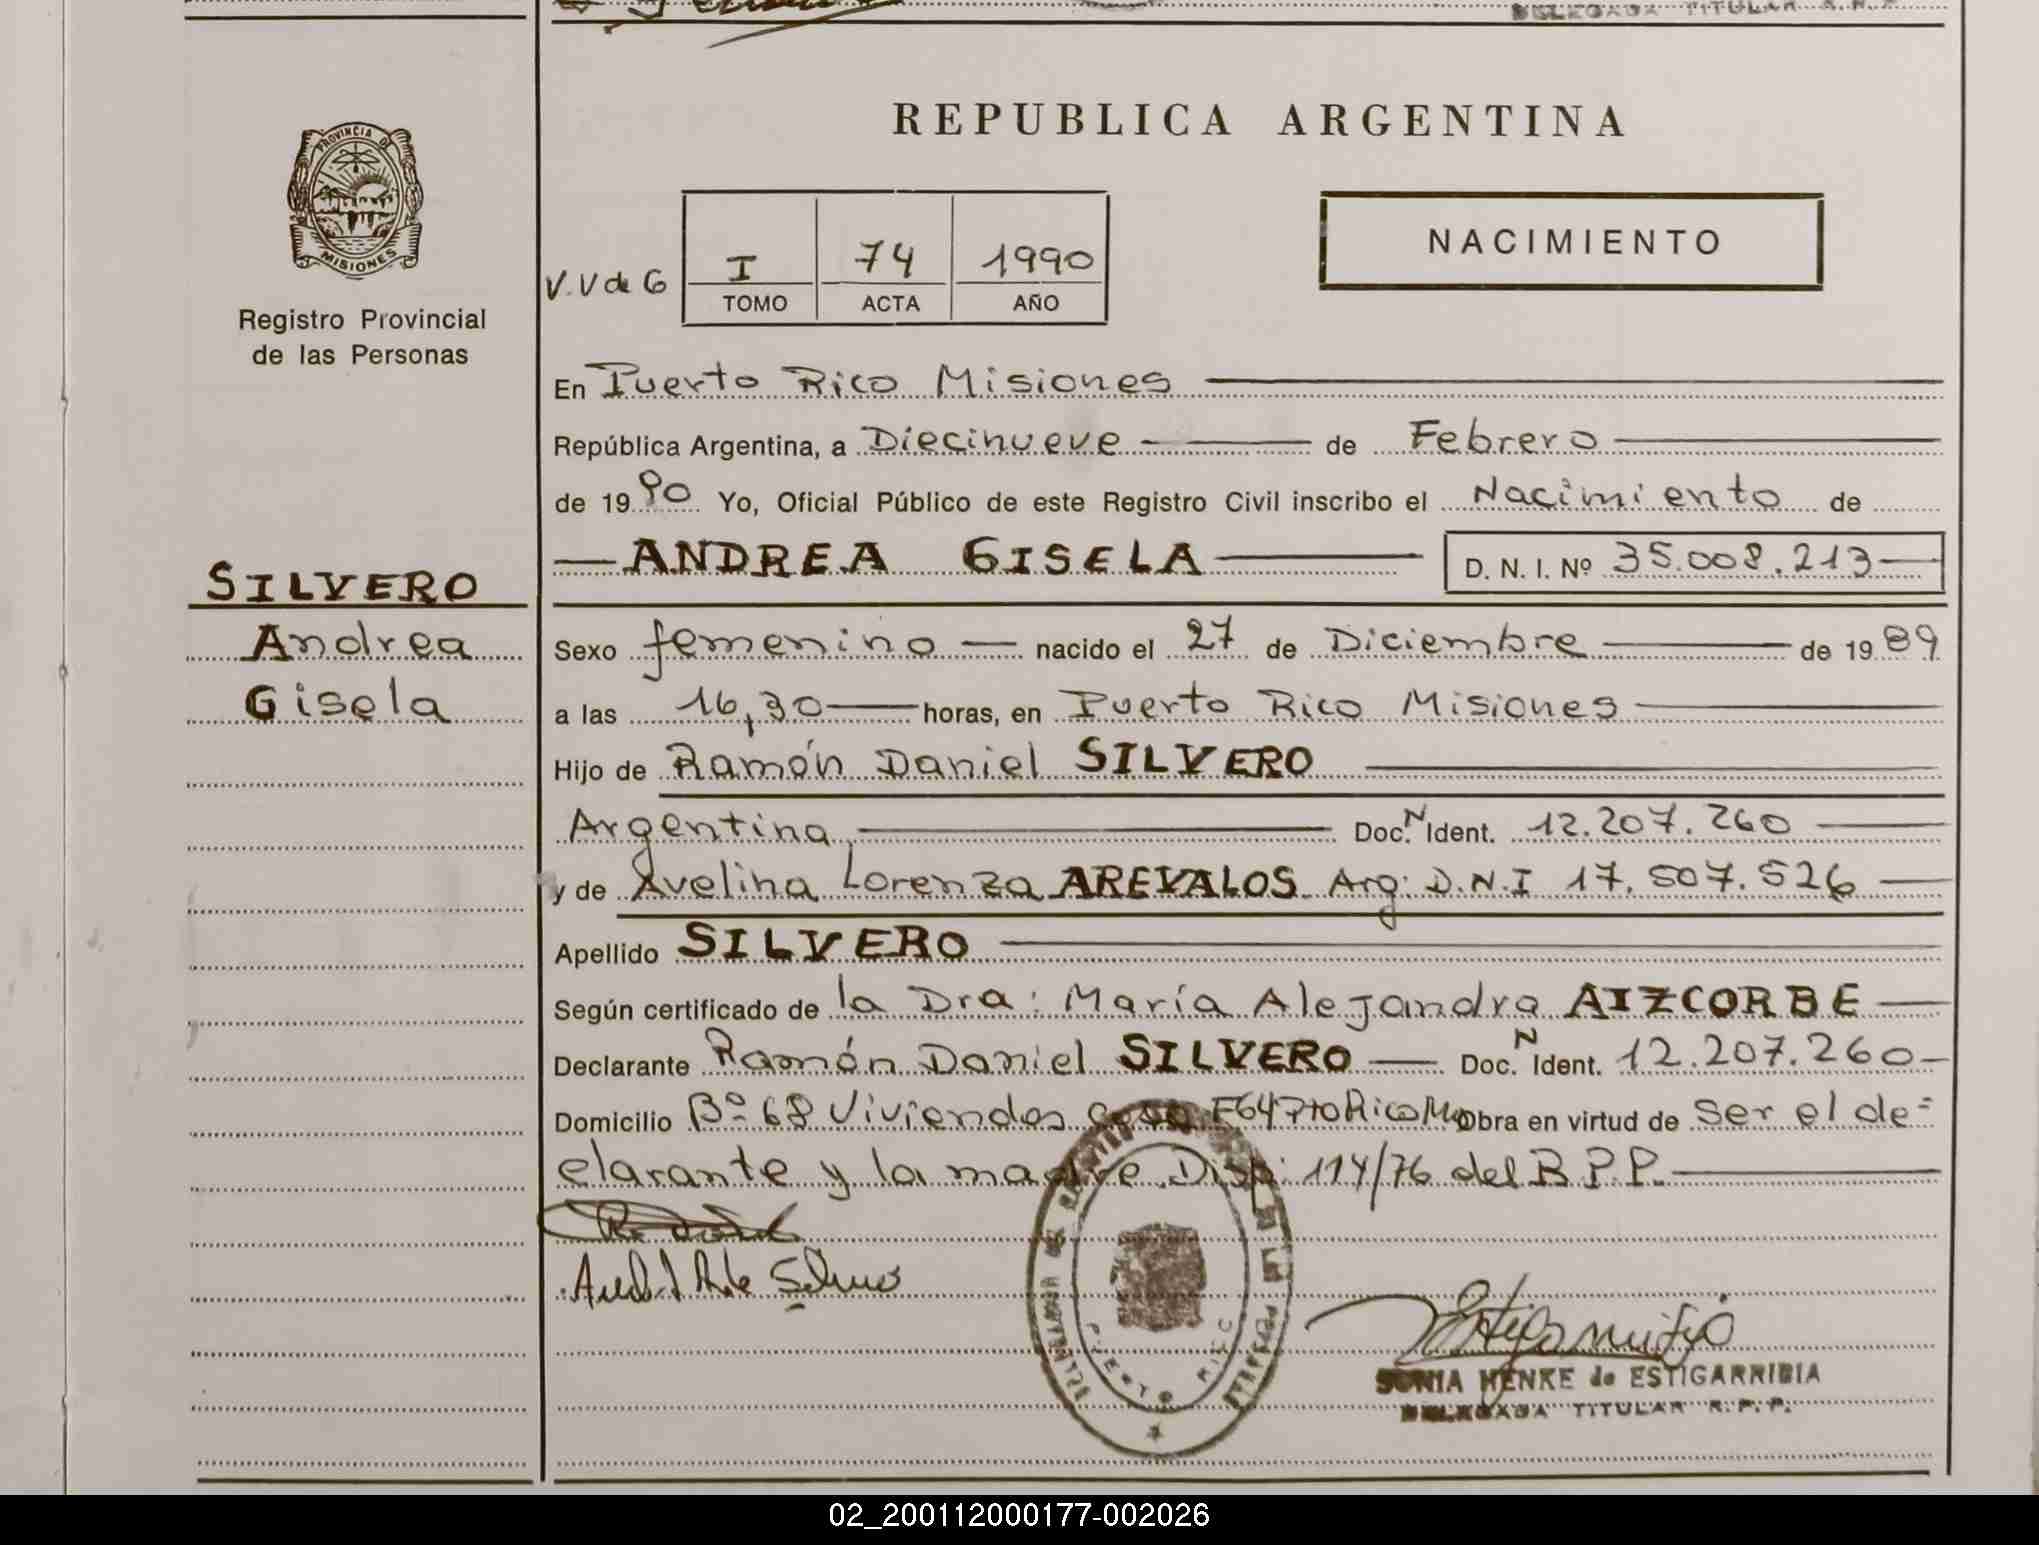 DELEGADA TITULAR R.P.P.
REPUBLICA ARGENTINA
PROVINCIA DE
MISIONES
NACIMIENTO
V.V de G
I 74 1990
TOMO ACTA AÑO
Registro Provincial
de las Personas
En Puerto Rico Misiones
República Argentina, a Diecinueve de Febrero
de 1990 Yo, Oficial Público de este Registro Civil inscribo el Nacimiento de
ANDREA GISELA D. N. I. Nº 35.008.213
SILVERO
Andrea
Gisela
Sexo femenino nacido el 27 de Diciembre de 1989
a las 16,30 horas, en Puerto Rico Misiones
Hijo de Ramón Daniel SILVERO
Argentina Doc. N Ident. 12.207.260
y de Avelina Lorenza AREVALOS Arg: D.N.I 17.507.526
Apellido SILVERO
Según certificado de la Dra: María Alejandra AIZCORBE
Declarante Ramón Daniel SILVERO Doc. N Ident. 12.207.260
Domicilio Bº 68 Viviendas casa Pto Rico Obra en virtud de ser el de=
clarante y la madre Disp: 114/76 del R.P.P.
PUERTO RICO
SONIA HENKE de ESTIGARRIBIA
DELEGADA TITULAR R.P.P.
02_200112000177-002026